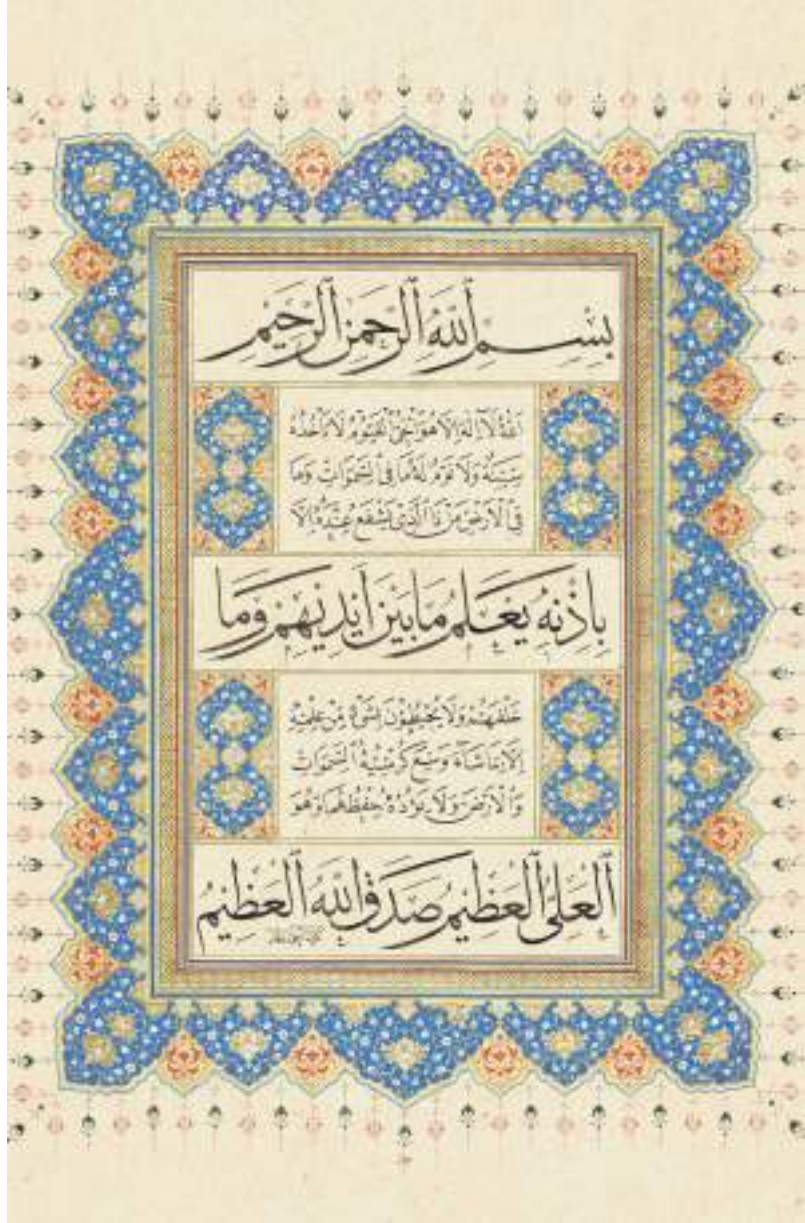 بِسْمِ ٱللّٰهِ ٱلرَّحْمٰنِ ٱلرَّحِيْمِ
اَللّٰهُ لَآ اِلٰهَ اِلَّا هُوَ اَلْحَيُّ الْقَيُّوْمُ لَا تَأْخُذُهُ
سِنَةٌ وَلَا نَوْمٌ لَهُ مَا فِي السَّمٰوَاتِ وَمَا
فِي الْاَرْضِ مَنْ ذَا الَّذِيْ يَشْفَعُ عِنْدَهُ اِلَّا
بِاِذْنِهِ يَعْلَمُ مَا بَيْنَ اَيْدِيْهِمْ وَمَا
خَلْفَهُمْ وَلَا يُحِيْطُوْنَ بِشَيْءٍ مِنْ عِلْمِهِ
اِلَّا بِمَا شَآءَ وَسِعَ كُرْسِيُّهُ السَّمٰوَاتِ
وَالْاَرْضَ وَلَا يَؤُدُهُ حِفْظُهُمَا وَهُوَ
اَلْعَلِيُّ الْعَظِيْمُ صَدَقَ اللّٰهُ الْعَظِيْمُ